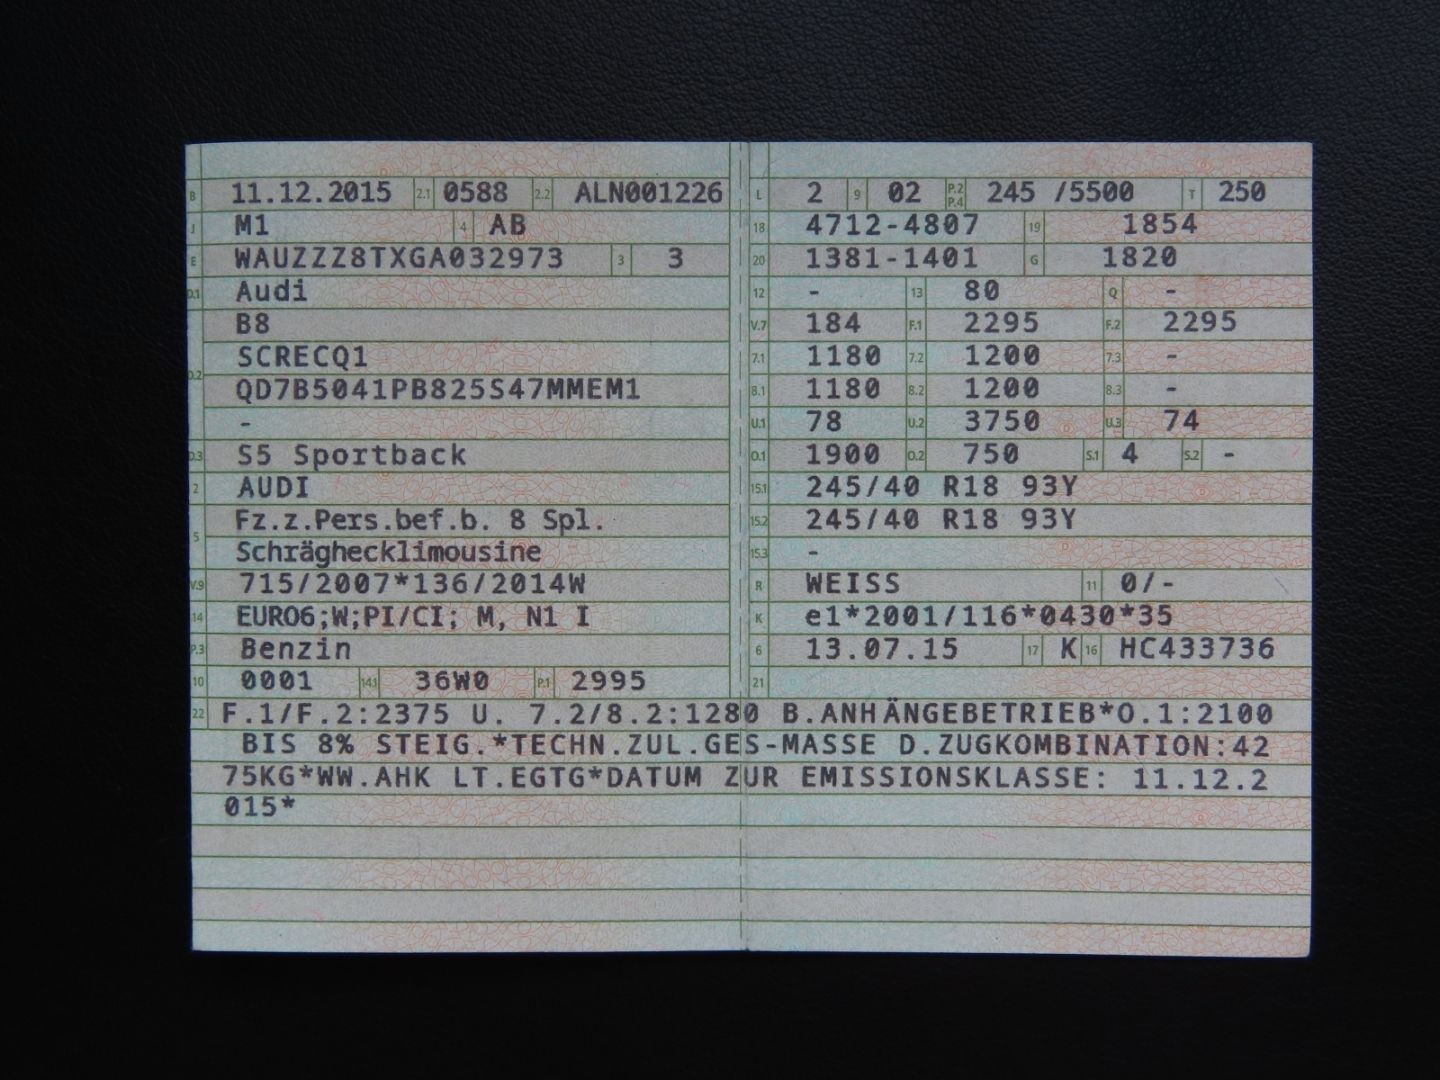 B 11.12.2015 2.1 0588 2.2 ALN001226
J M1 4 AB
E WAUZZZ8TXGA032973 3 3
D.1 Audi
B8
D.2 SCRECQ1
QD7B5041PB825S47MMEM1
-
D.3 S5 Sportback
2 AUDI
5 Fz.z.Pers.bef.b. 8 Spl.
Schräghecklimousine
V.9 715/2007*136/2014W
14 EURO6;W;PI/CI; M, N1 I
P.3 Benzin
10 0001 14.1 36W0 P.1 2995
L 2 9 02 P.2 P.4 245 /5500 T 250
18 4712-4807 19 1854
20 1381-1401 G 1820
12 - 13 80 Q -
V.7 184 F.1 2295 F.2 2295
7.1 1180 7.2 1200 7.3 -
8.1 1180 8.2 1200 8.3 -
U.1 78 U.2 3750 U.3 74
O.1 1900 O.2 750 S.1 4 S.2 -
15.1 245/40 R18 93Y
15.2 245/40 R18 93Y
15.3 -
R WEISS 11 0/-
K e1*2001/116*0430*35
6 13.07.15 17 K 16 HC433736
21
22 F.1/F.2:2375 U. 7.2/8.2:1280 B.ANHÄNGEBETRIEB*O.1:2100
BIS 8% STEIG.*TECHN.ZUL.GES-MASSE D.ZUGKOMBINATION:42
75KG*WW.AHK LT.EGTG*DATUM ZUR EMISSIONSKLASSE: 11.12.2
015*